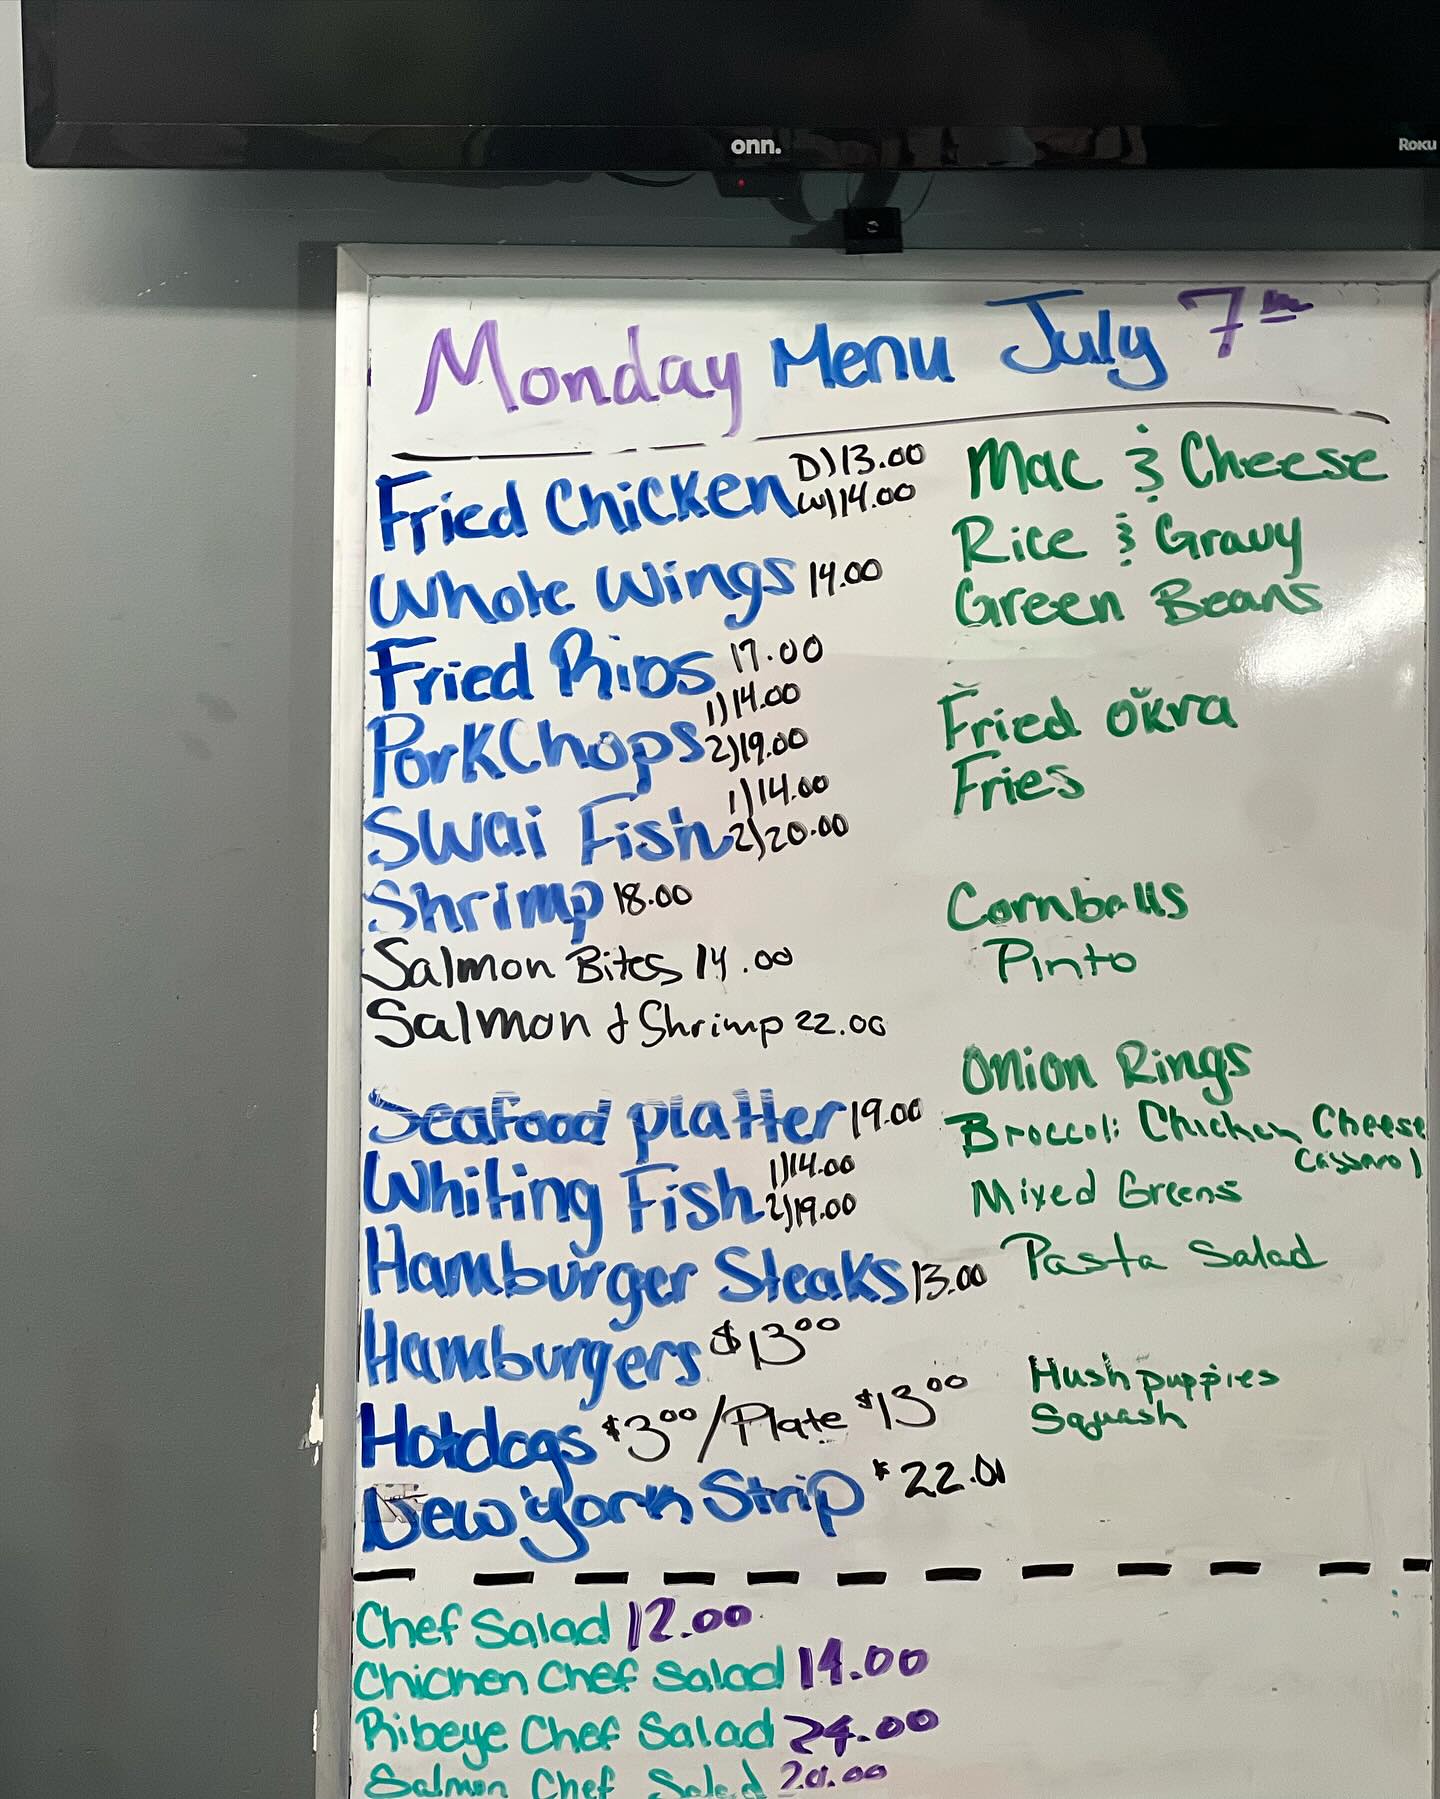 onn.
Roku
Monday Menu July 7th
Fried Chicken D) 13.00
W) 14.00
Whole Wings 14.00
Fried Ribs 17.00
Pork Chops 1) 14.00
2) 19.00
Swai Fish 1) 14.00
2) 20.00
Shrimp 18.00
Salmon Bites 14.00
Salmon & Shrimp 22.00
Seafood platter 19.00
Whiting Fish 1) 14.00
2) 19.00
Hamburger Steaks 13.00
Hamburgers $13.00
Hotdogs $3.00/Plate $13.00
New York Strip $22.00
Mac & Cheese
Rice & Gravy
Green Beans
Fried Okra
Fries
Cornballs
Pinto
Onion Rings
Broccoli Chicken Cheese
Cassarol
Mixed Greens
Pasta Salad
Hushpuppies
Squash
Chef Salad 12.00
Chicken Chef Salad 14.00
Ribeye Chef Salad 24.00
Salmon Chef Salad 20.00